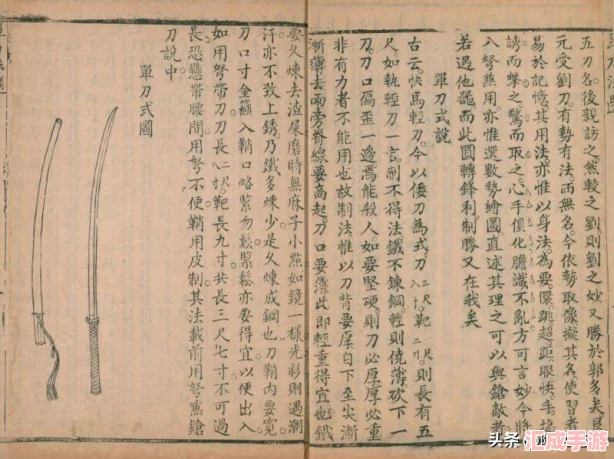 五刀名後親訪之然較之劉則劉之妙又勝於郭多矣
元受劉刀有勢有法而無名今依勢取像擬其名使習者
易於記憶其用法亦惟以身法為要儇跳超距眼快手
誘而擊之驚而取之心手俱化膽識不亂方可言妙今將
八弩燕用亦惟選數勢繪圖直述其理之可以與鎗敵者
若遇他器而此圓轉鋒利制勝又在我矣
單刀式說
古云快馬輕刀今以倭刀為式刀三尺八寸靶一尺二寸則長有五
尺如執輕刀一言制不得法鐵不錬鋼輕則僥薄砍下一
刀刀口偏歪一邊焉能殺人如要堅硬則刀必厚厚必重
非有力者不能用也故制法惟以刀背要厚自下至尖漸
漸薄去兩旁脊線要高起刀口要薄此即輕重得宜也鐵
要久煉去渣屎磨時無麻子小點如鏡一樣光彩則遇潮
汗亦不致上銹乃鐵多煉少是久煉成鋼也刀鞘內要寬
刀口寸金箍入鞘口略緊勿鬆緊鬆亦要得宜以便出入
如用弩帶刀刀長二尺八寸靶長九寸共長三尺七寸不可過
長恐懸帶腰間用弩不便鞘用皮制其法載前用弩燕鎗
刀說中
單刀式圖
头条
汇成手游